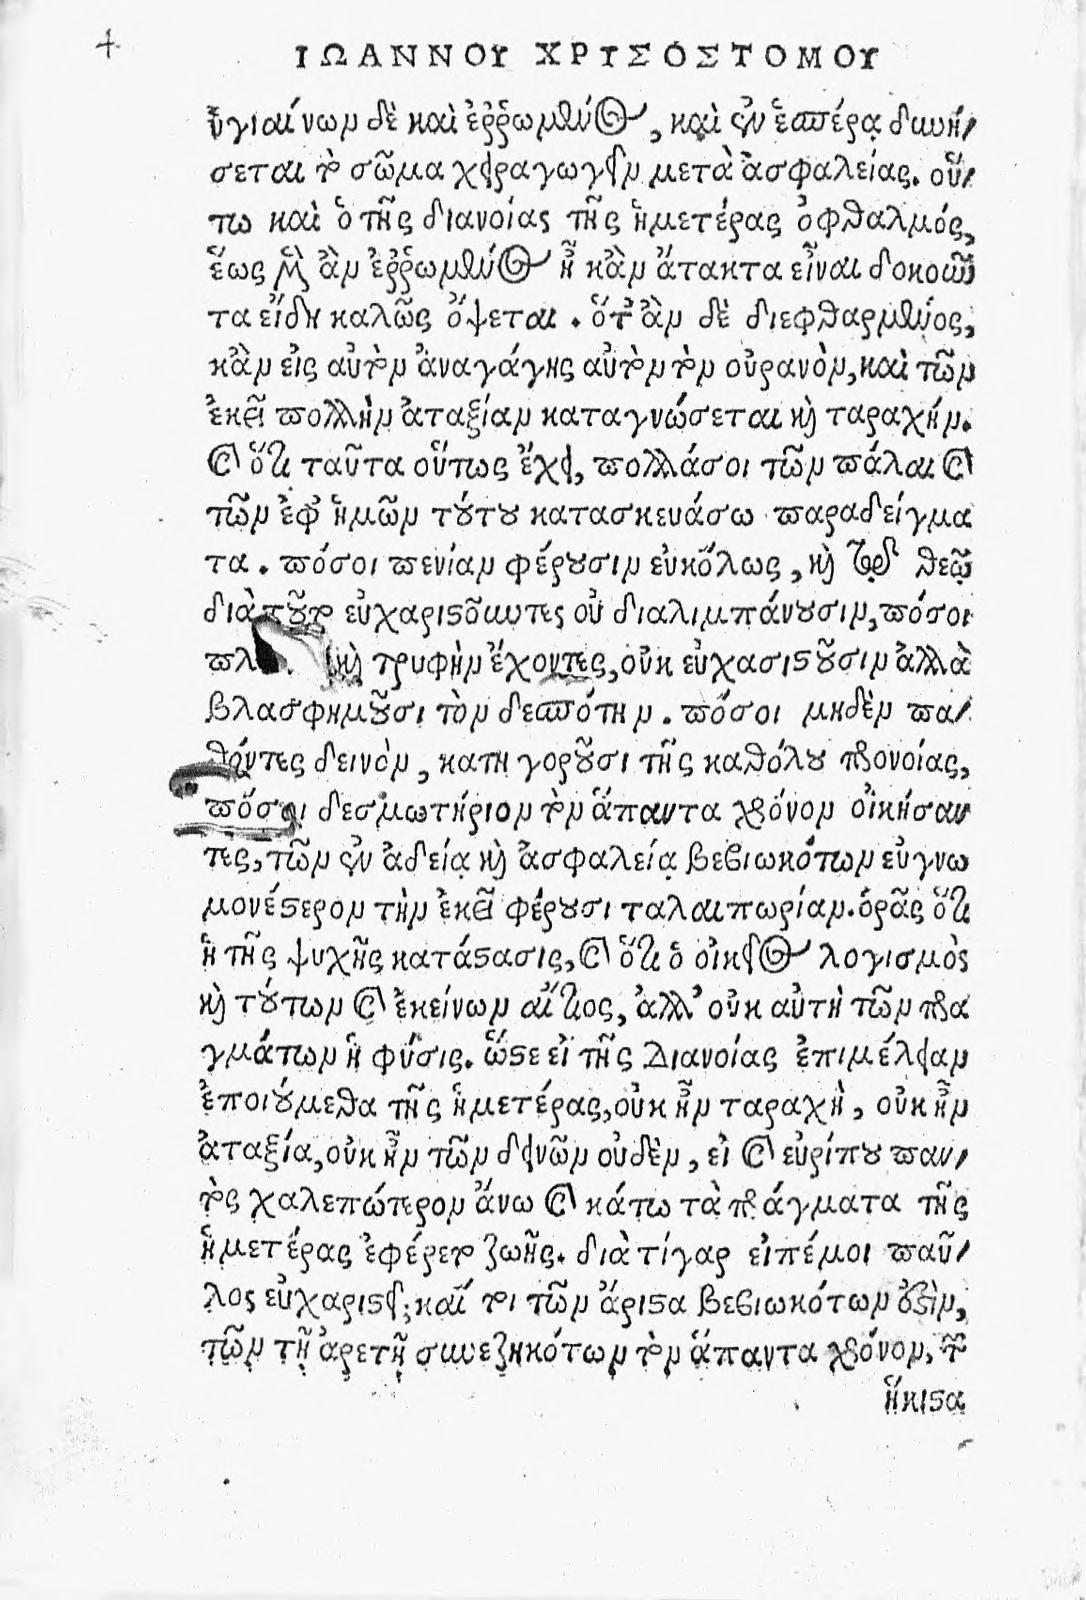 4
ΙΩΑΝΝΟΥ ΧΡΥΣΟΣΤΟΜΟΥ
ὑγιαίνων δὲ καὶ ἐῤῥωμένος, καὶ ἐν ἑσπέρᾳ δυνή-
σεται τὸ σῶμα χειραγωγεῖν μετὰ ἀσφαλείας. οὕ-
τω καὶ ὁ τῆς διανοίας τῆς ἡμετέρας ὀφθαλμός,
ἕως μὲν ἂν ἐῤῥωμένος ᾖ κἂν ἄτακτα εἶναι δοκοῦν
τα εἴδη καλῶς ὄψεται. ὅταν δὲ διεφθαρμένος,
κἂν εἰς αὐτὸν ἀναγάγης αὐτὸν τὸν οὐρανὸν, καὶ τῶν
ἐκεῖ πολλὴν ἀταξίαν καταγνώσεται καὶ ταραχήν.
καὶ ὅτι ταῦτα οὕτως ἔχει, πολλάσοι τῶν πάλαι καὶ
τῶν ἐφ' ἡμῶν τούτου κατασκευάσω παραδείγμα
τα. πόσοι πενίαν φέρουσιν εὐκόλως, καὶ τῷ θεῷ
διὰ τοῦτο εὐχαριστοῦντες οὐ διαλιμπάνουσιν, πόσοι
καὶ τρυφὴν ἔχοντες, οὐκ εὐχασιστοῦσιν ἀλλὰ
βλασφημοῦσι τὸν δεσπότην. πόσοι μηδὲν πα-
θόντες δεινὸν, κατηγοροῦσι τῆς καθόλου προνοίας,
πόσοι δεσμωτήριον τὸν ἅπαντα χρόνον οἰκήσαν
τες, τῶν ἐν ἀδείᾳ καὶ ἀσφαλείᾳ βεβιωκότων εὐγνω
μονέστερον τὴν ἐκεῖ φέρουσι ταλαιπωρίαν. ὁρᾷς ὅτι
ἡ τῆς ψυχῆς κατάστασις, καὶ ὅτι ὁ οἰκεῖος λογισμὸς
καὶ τούτων καὶ ἐκείνων αἴτιος, ἀλλ' οὐκ αὐτὴ τῶν πρα
γμάτων ἡ φύσις. ὥστε εἰ τῆς Διανοίας ἐπιμέλειαν
ἐποιούμεθα τῆς ἡμετέρας, οὐκ ἦν ταραχὴ, οὐκ ἦν
ἀταξία, οὐκ ἦν τῶν δεινῶν οὐδὲν, εἰ καὶ εὐρίπου παν-
τὸς χαλεπώτερον ἄνω καὶ κάτω τὰ πράγματα τῆς
ἡμετέρας ἐφέρετο ζωῆς. διὰ τί γαρ εἰπέμοι παῦ-
λος εὐχαριστεῖ; καί τοι τῶν ἄριστα βεβιωκότων οὗτος ἦν,
τῶν τῇ ἀρετῇ συνεζηκότων τὸν ἅπαντα χρόνον, τῶν
ἥκιστα